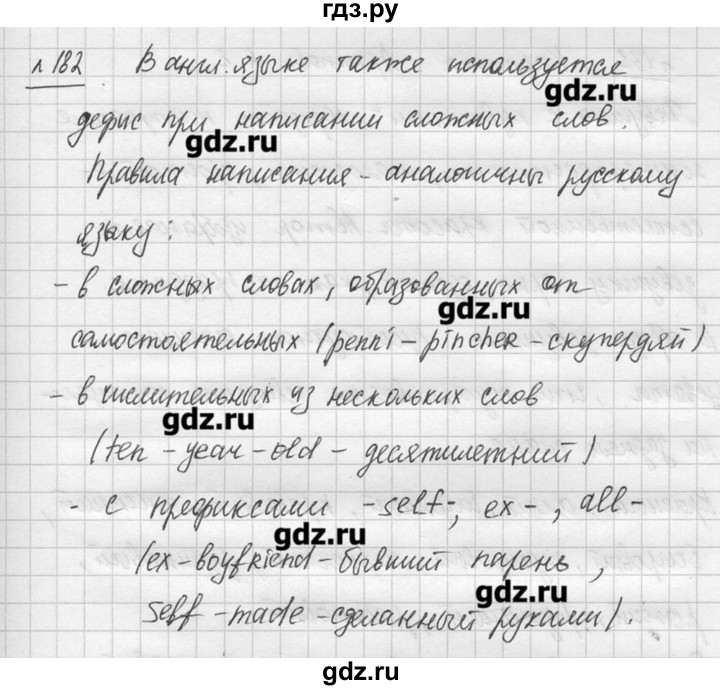 гдз.ру
л 182 В англ. языке также используется
gdz.ru
дефис при написании сложных слов.
gdz.ru
Правила написания - аналогичны русскому
языку:
- в сложных словах, образованных от
gdz.ru
самостоятельных (penni - pincher - скупердяй)
- в числительных из нескольких слов
gdz.ru
(ten - year - old - десятилетний)
- с префиксами -self-, ex-, all-
gdz.ru
(ex - boyfriend - бывший парень,
gdz.ru
self - made - сделанный руками).
gdz.ru